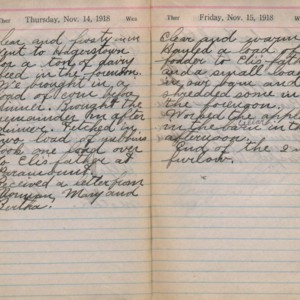 Ther Thursday, Nov. 14, 1918 Wea
Clear and frosty
Went to Hagerstown
for a ton of dairy
feed in the forenoon.
We brought in a
load of corn before
dinner. Brought the
remainder in after
dinner. Fetched in
two load of
Took one load over
to Elis father at
Received a letter from
Norman, Mary and
Bertha.
Ther Friday, Nov. 15, 1918 Wea
Clear and warm
Hauled a load of
fodder to Elis father
and a small load
in our barn and
shreded some in
the forenoon.
Worked the apples
in the barn in the
afternoon.
End of the
furlow.